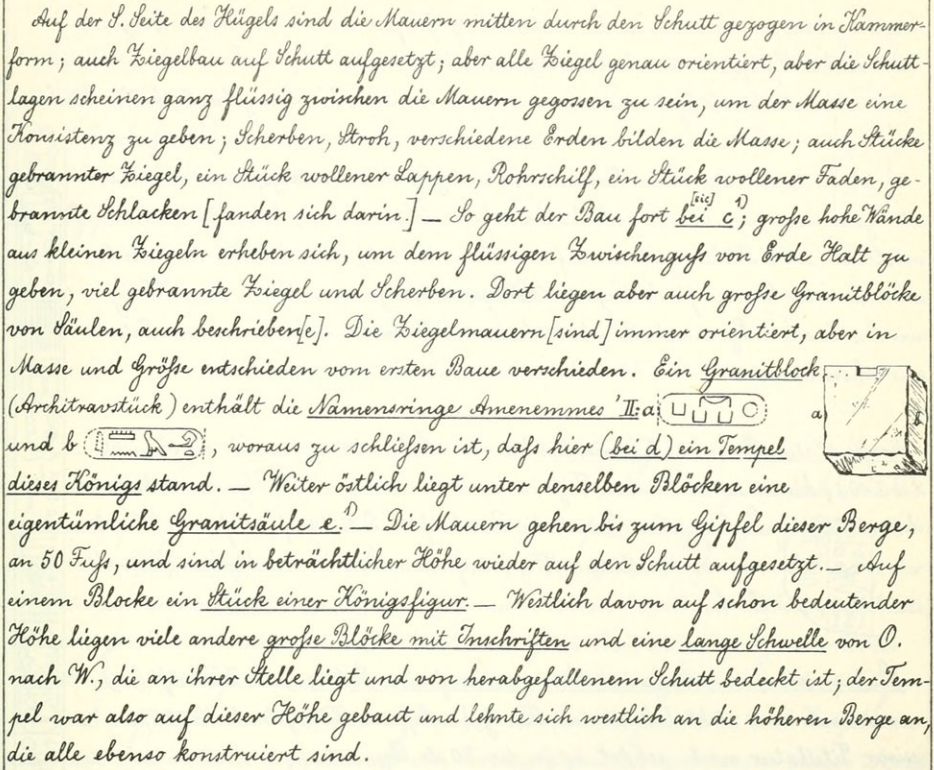 Auf der S. Seite des Hügels sind die Mauern mitten durch den Schutt gezogen in Kammer-
form; auch Ziegelbau auf Schutt aufgesetzt; aber alle Ziegel genau orientiert, aber die Schutt-
lagen scheinen ganz flüssig zwischen die Mauern gegossen zu sein, um der Masse eine
Konsistenz zu geben; Scherben, Stroh, verschiedene Erden bilden die Masse; auch Stücke
gebrannter Ziegel, ein Stück wollener Lappen, Rohrschilf, ein Stück wollener Faden, ge-
brannte Schlacken [fanden sich darin.] — So geht der Bau fort bei [sic] c 1); große hohe Wände
aus kleinen Ziegeln erheben sich, um dem flüssigen Zwischenguß von Erde Halt zu
geben, viel gebrannte Ziegel und Scherben. Dort liegen aber auch große Granitblöcke
von Säulen, auch beschrieben[e]. Die Ziegelmauern [sind] immer orientiert, aber in
Masse und Größe entschieden vom ersten Baue verschieden. Ein Granitblock
(Architravstück) enthält die Namensringe Amenemmes' II: a
a
und b , woraus zu schließen ist, daß hier (bei d) ein Tempel
dieses Königs stand. — Weiter östlich liegt unter denselben Blöcken eine
eigentümliche Granitsäule e. 1) — Die Mauern gehen bis zum Gipfel dieser Berge,
an 50 Fuß, und sind in beträchtlicher Höhe wieder auf den Schutt aufgesetzt. — Auf
einem Blocke ein Stück einer Königsfigur. — Westlich davon auf schon bedeutender
Höhe liegen viele andere große Blöcke mit Inschriften und eine lange Schwelle von O.
nach W., die an ihrer Stelle liegt und von herabgefallenem Schutt bedeckt ist; der Tem-
pel war also auf dieser Höhe gebaut und lehnte sich westlich an die höheren Berge an,
die alle ebenso konstruiert sind.